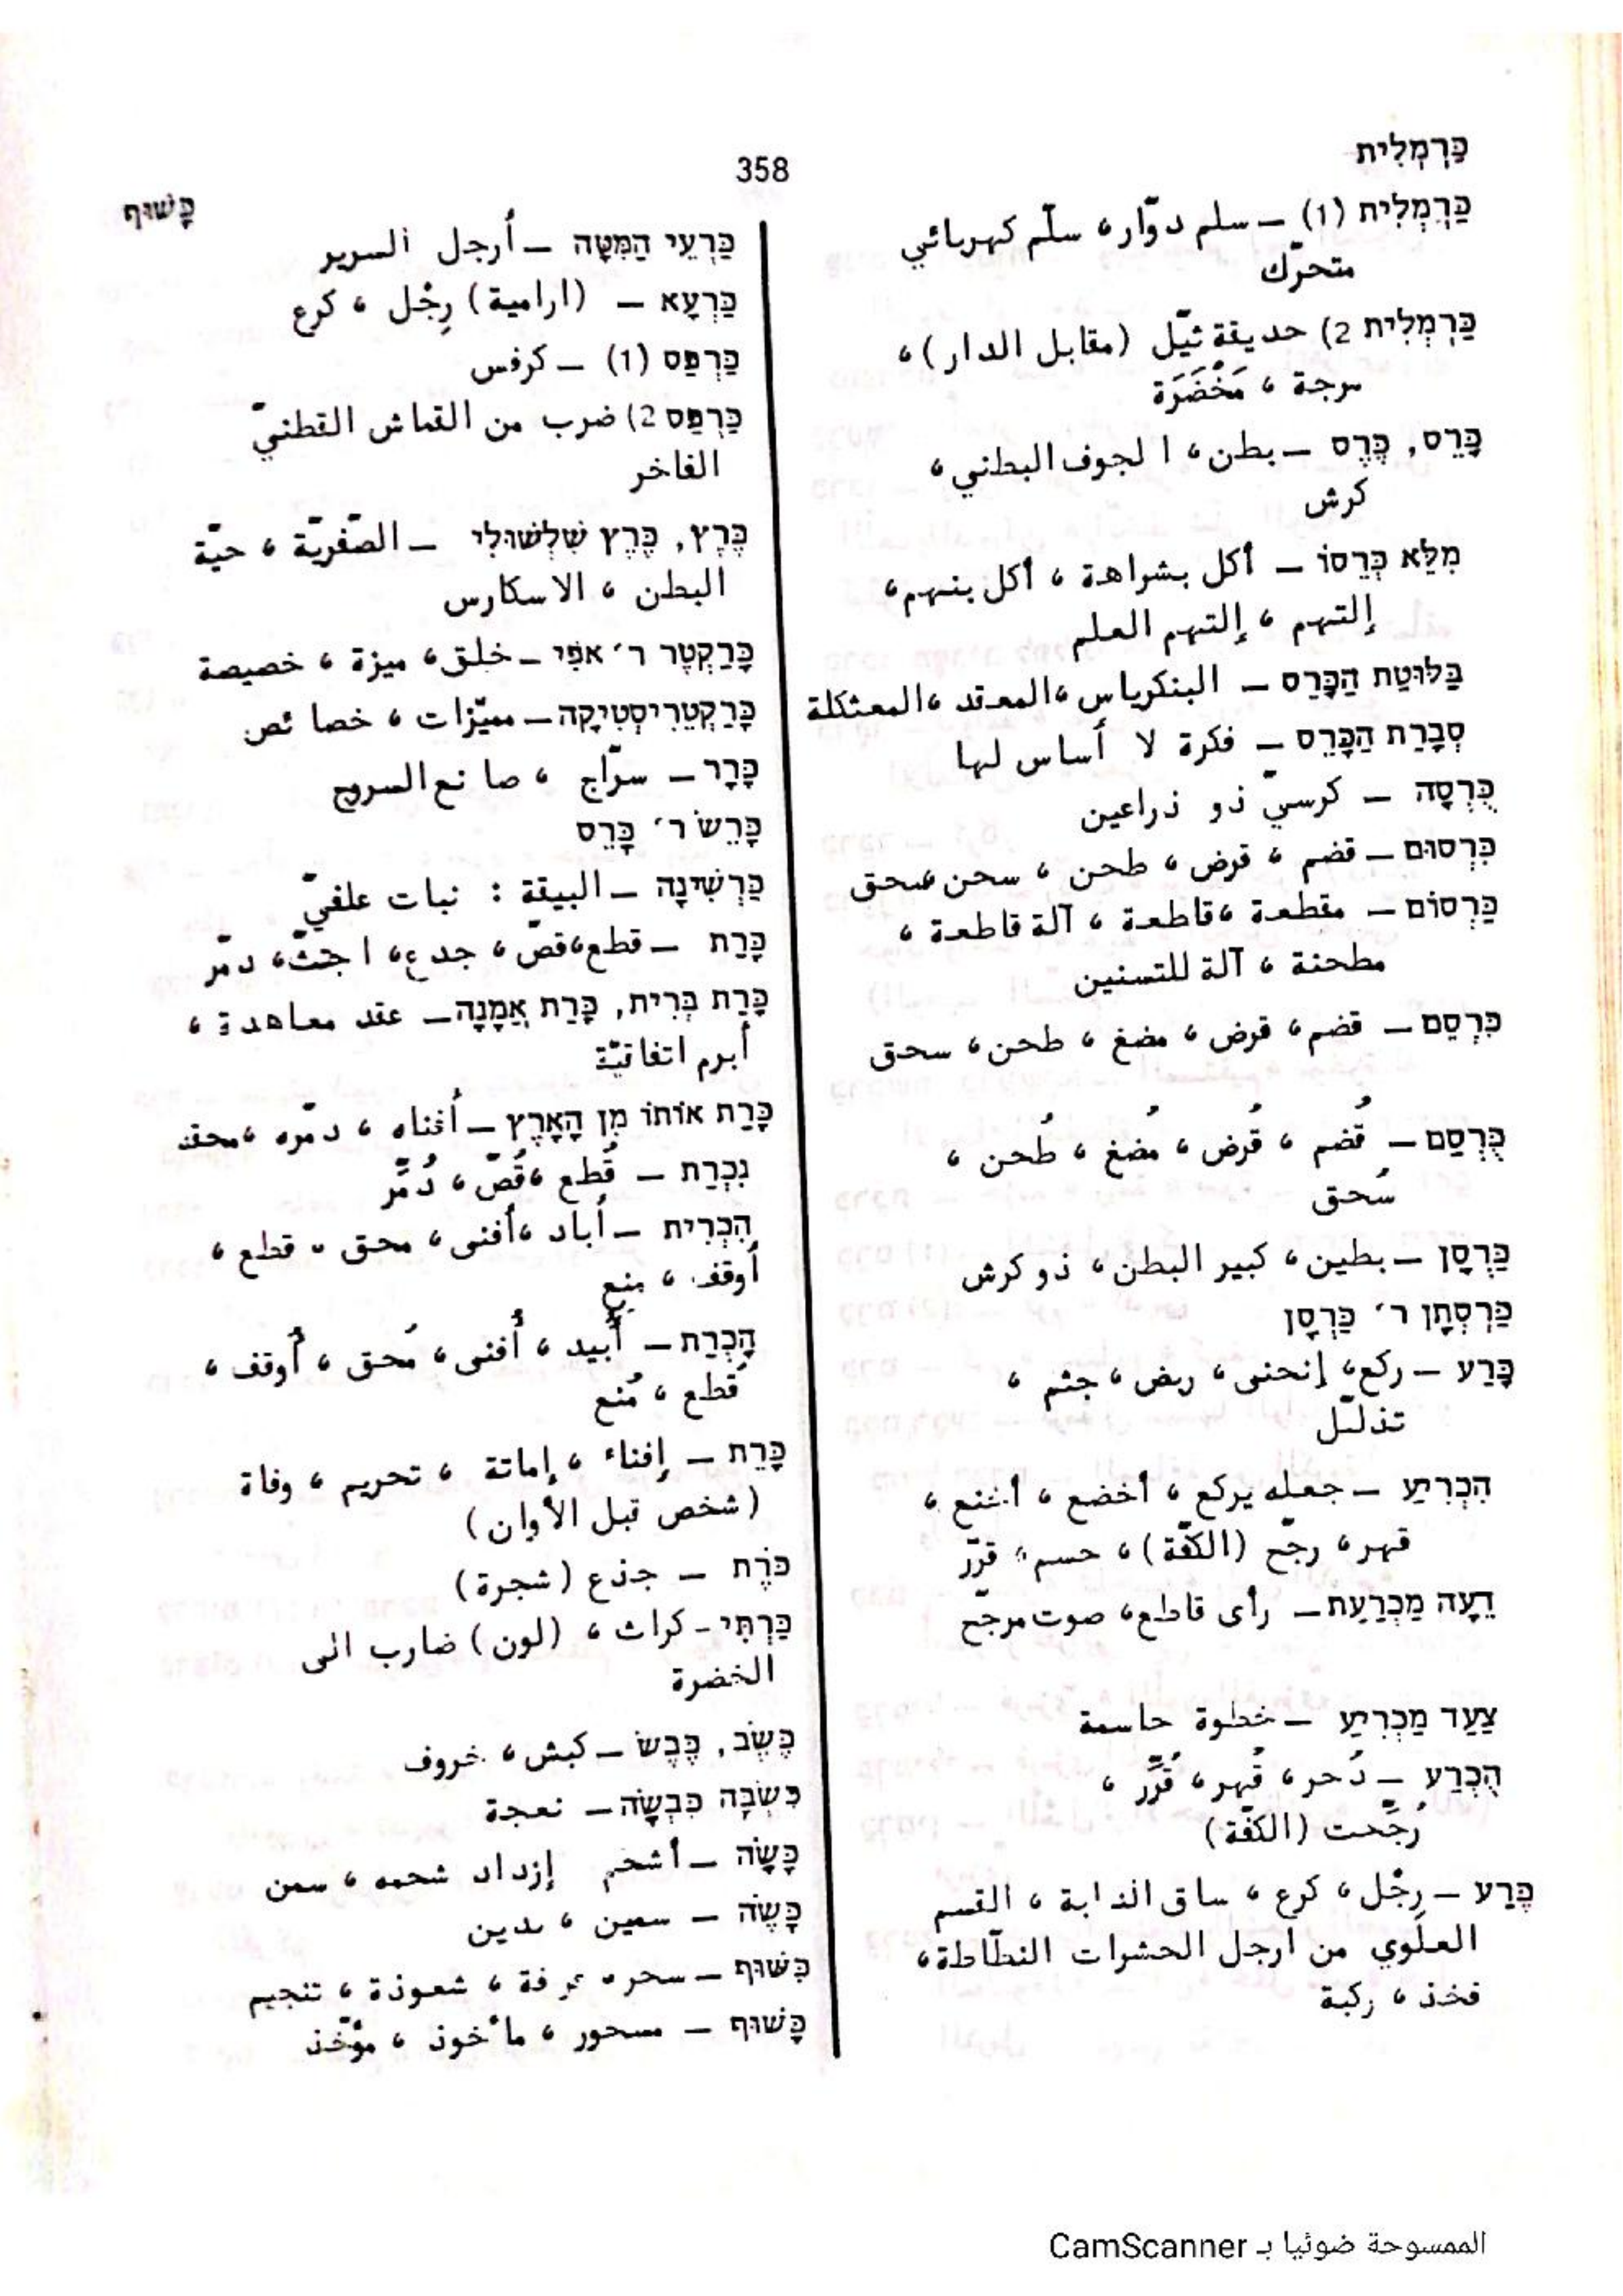 כַּרְמְלִית
358
כָּשׁוּף
כַּרְמְלִית (1) – سلم دوّار، سلّم كهربائي
متحرّك
כַּרְמְלִית 2) حديقة ثيّل (مقابل الدار)،
مرجة، مَخْضَرَة
כָּרֵס, כֶּרֶס – بطن، الجوف البطني،
كرش
מִלֵּא כְּרֵסוֹ – أكل بشراهة، أكل بنهم،
إلتهم، إلتهم العلم
בַּלּוּטַת הַכָּרֵס – البنكرياس، المعقد، المعثكلة
סְבָרַת הַכָּרֵס – فكرة لا أساس لها
כֻּרְסָה – كرسيّ ذو ذراعين
כִּרְסוּם – قضم، قرض، طحن، سحن، سحق
כַּרְסוֹם – مقطعة، قاطعة، آلة قاطعة،
مطحنة، آلة للتسنين
כִּרְסֵם – قضم، قرض، مضغ، طحن، سحق
כֻּרְסַם – قُضم، قُرض، مُضغ، طُحن،
سُحق
כַּרְסָן – بطين، كبير البطن، ذو كرش
כַּרְסְתָן ר׳ כַּרְסָן
כָּרַע – ركع، إنحنى، ربض، جثم،
تذلّل
הִכְרִיעַ – جعله يركع، أخضع، أخنع،
قهر، رجّح (الكفّة)، حسم، قرّر
דֵּעָה מַכְרַעַת – رأى قاطع، صوت مرجّح
צַעַד מַכְרִיעַ – خطوة حاسمة
הֻכְרַע – دُحر، قُهر، قُرّر،
رُجّحت (الكفّة)
כֶּרַע – رِجْل، كرع، ساق الدابة، القسم
العلوي من ارجل الحشرات النطّاطة،
فخذ، ركبة
כַּרְעֵי הַמִּטָּה – أرجل السرير
כַּרְעָא – (ارامية) رِجْل، كرع
כַּרְפַּס (1) – كرفس
כַּרְפַּס 2) ضرب من القماش القطنيّ
الفاخر
כֶּרֶץ, כֶּרֶץ שִׁלְשׁוּלִי – الصّفريّة، حيّة
البطن، الاسكارس
כָּרַקְטֶר ר׳ אֹפִי – خلق، ميزة، خصيصة
כָּרַקְטֵרִיסְטִיקָה – مميّزات، خصائص
כָּרָר – سرّاج، صانع السروج
כָּרֵשׂ ר׳ כָּרֵס
כַּרְשִׁינָה – البيقة : نبات علفيّ
כָּרַת – قطع، قصّ، جدع، اجتثّ، دمّر
כָּרַת בְּרִית, כָּרַת אֲמָנָה – عقد معاهدة،
أبرم اتفاقيّة
כָּרַת אוֹתוֹ מִן הָאָרֶץ – أفناه، دمّره، محقه
נִכְרַת – قُطع، قُصّ، دُمّر
הִכְרִית – أباد، أفنى، محق، قطع،
أوقف، منع
הָכְרַת – أُبيد، أُفنى، مُحق، أُوقف،
قُطع، مُنع
כָּרֵת – إفناء، إماتة، تحريم، وفاة
(شخص قبل الأوان)
כֹּרֶת – جذع (شجرة)
כַּרְתִּי – كراث، (لون) ضارب الى
الخضرة
כֶּשֶׂב, כֶּבֶשׂ – كبش، خروف
כִּשְׂבָּה כִּבְשָׂה – نعجة
כָּשָׂה – أشحم إزداد شحمه، سمن
כָּשֶׂה – سمين، بدين
כִּשּׁוּף – سحر، عرفة، شعوذة، تنجيم
כָּשׁוּף – مسحور، مأخوذ، مؤخّذ
الممسوحة ضوئيا بـ CamScanner